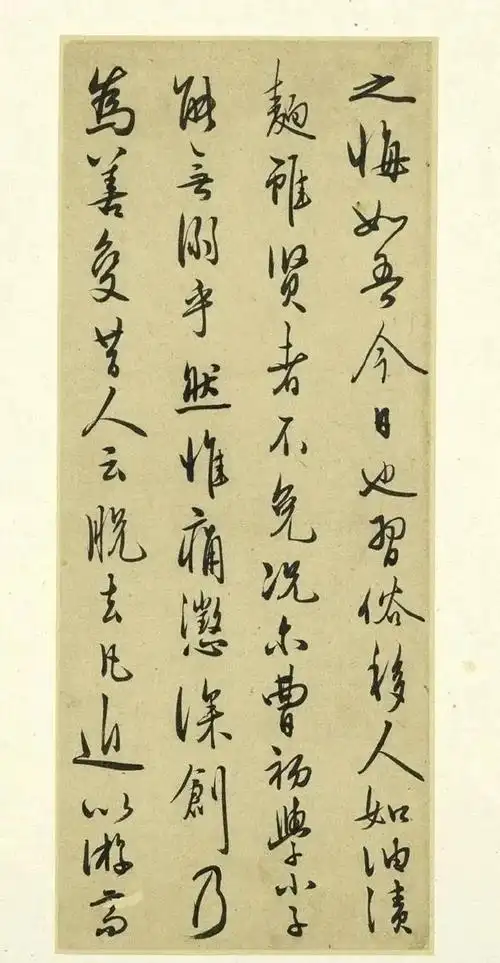 之悔如吾今日也習俗移人如油漬
麵雖賢者不免況尔曹初學小子
能無溺乎然惟痛懲深創乃
為善變昔人云脫去凡近以游高